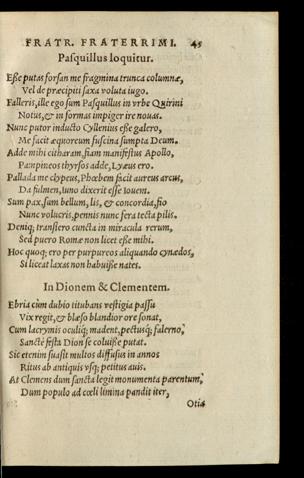 FRATR. FRATERRIMI. 45
Pasquillus loquitur.
Esse putas forsan me fragmina trunca columnæ,
Vel de præcipiti saxa voluta iugo.
Falleris, ille ego sum Pasquillus in vrbe Quirini
Notus, & in formas impiger ire nouas.
Nunc putor inducto Cyllenius esse galero,
Me facit æquoreum fuscina sumpta Deum.
Adde mihi citharam, fiam manifestus Apollo,
Pampineos thyrsos adde, Lyæus ero.
Pallada me clypeus, Phœbem facit aureus arcus,
Da fulmen, uno dixerit esse Iouem.
Sum pax, sum bellum, lis, & concordia, fio
Nunc volucris, pennis nunc fera tecta pilis.
Deniq; transfero cuncta in miracula rerum,
Sed puero Romæ non licet esse mihi.
Hoc quoq; ero per purpureos aliquando cynædos,
Si liceat laxas non habuisse nates.
In Dionem & Clementem.
Ebria cùm dubio titubans vestigia passu
Vix regit, & blæso blandior ore sonat,
Cum lacrymis oculiq; madent, pectusq; falerno,
Sanctè festa Dion se coluisse putat.
Sic etenim suasit multos diffusus in annos
Ritus ab antiquis vsq; petitus auis.
At Clemens dum sancta legit monumenta parentum,
Dum populo ad cœli limina pandit iter,
Otia